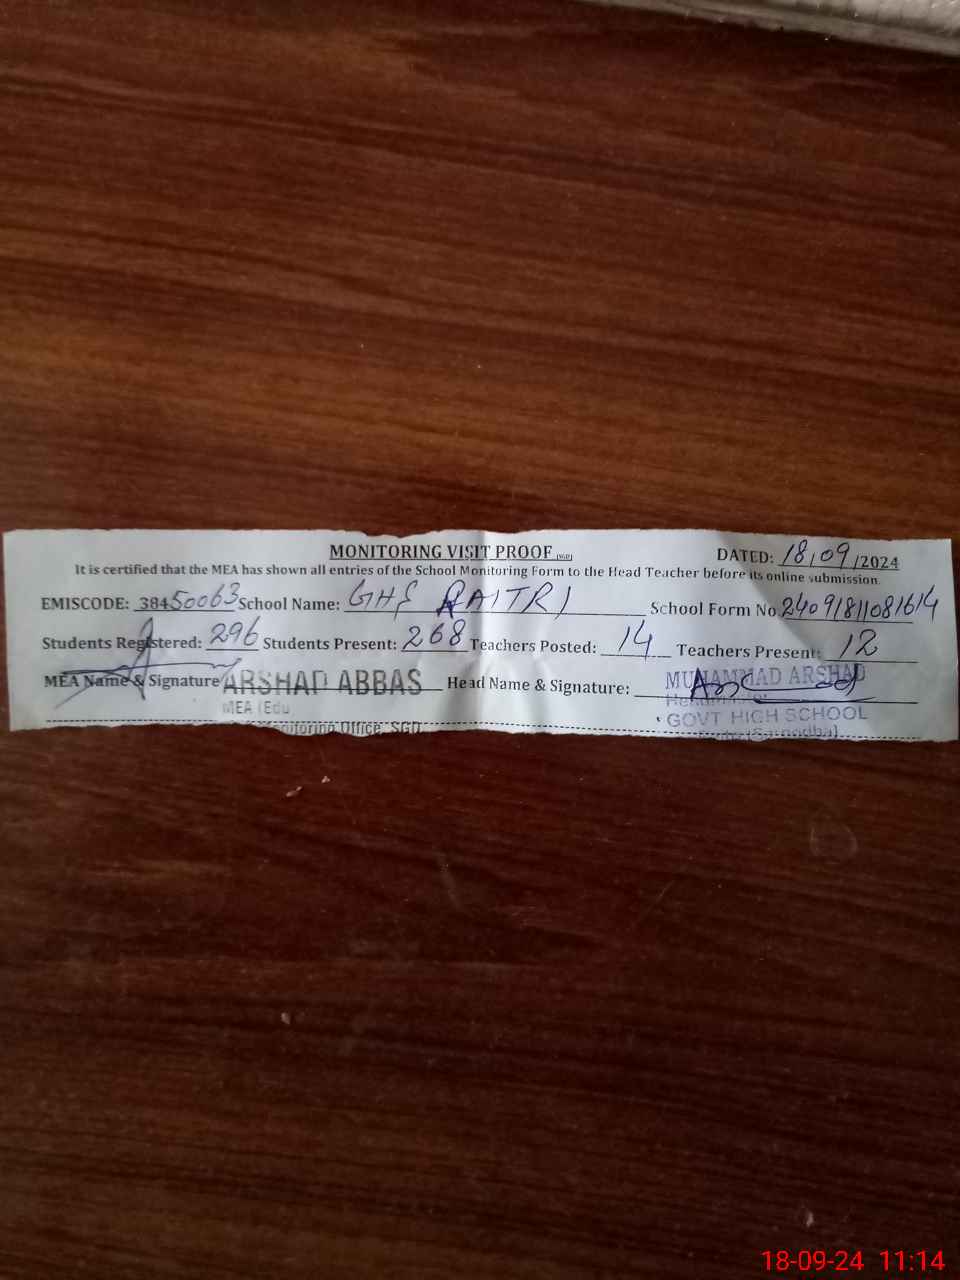 MONITORING VISIT PROOF (SGD)
DATED: 18,09/2024
It is certified that the MEA has shown all entries of the School Monitoring Form to the Head Teacher before its online submission.
EMISCODE: 38450063 School Name: GHS RAITRI School Form No 24091811081614
Students Registered: 296 Students Present: 268 Teachers Posted: 14 Teachers Present: 12
MEA Name & Signature ARSHAD ABBAS Head Name & Signature: MUHAMMAD ARSHAD
MEA (Edu Headmaster
GOVT HIGH SCHOOL
onitoring Office, SGD
18-09-24 11:14